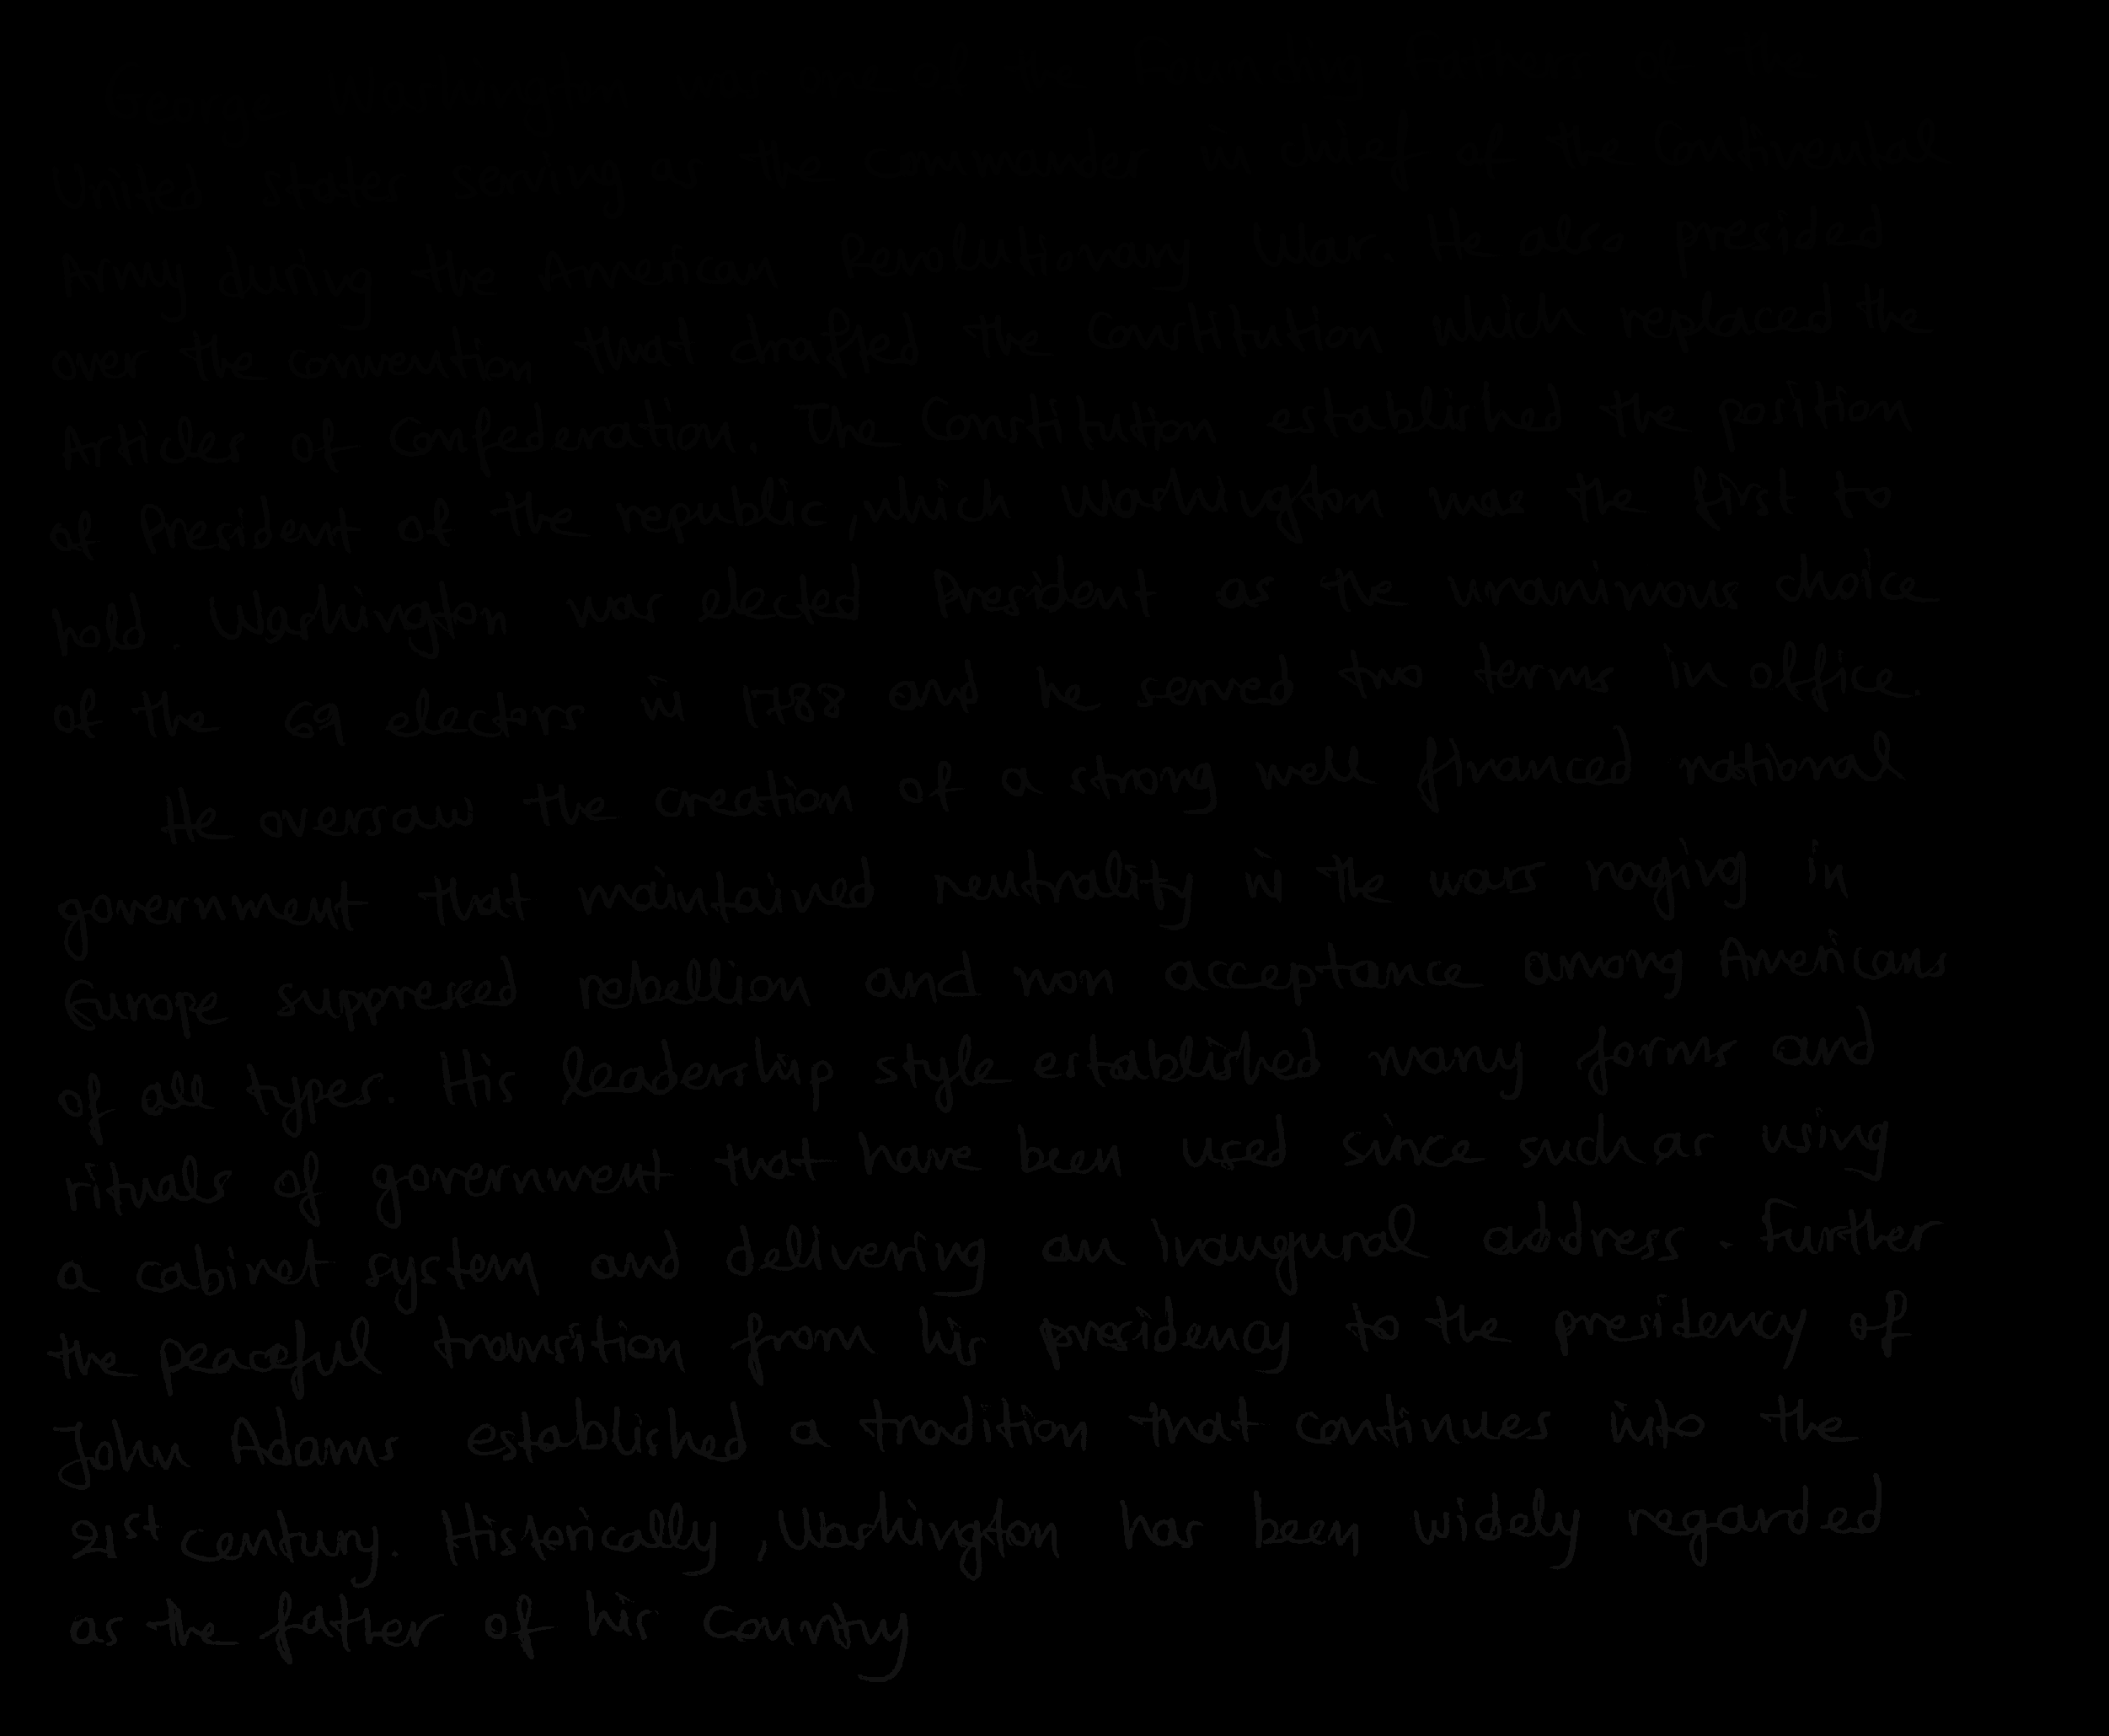 George Washington was one of the Founding Fathers of the
United States serving as the commander in chief of the Continental
Army during the American Revolutionary War. He also presided
over the convention that drafted the Constitution which replaced the
Articles of Confederation. The Constitution established the position
of President of the republic, which Washington was the first to
hold. Washington was elected President as the unanimous choice
of the 69 electors in 1788 and he served two terms in office.
He oversaw the creation of a strong well financed national
government that maintained neutrality in the wars raging in
Europe suppressed rebellion and non acceptance among Americans
of all types. His leadership style established many forms and
rituals of government that have been used since such as using
a cabinet system and delivering an inaugural address. Further
the peaceful transition from his presidency to the presidency of
John Adams established a tradition that continues into the
21st century. Historically, Washington has been widely regarded
as the father of his country